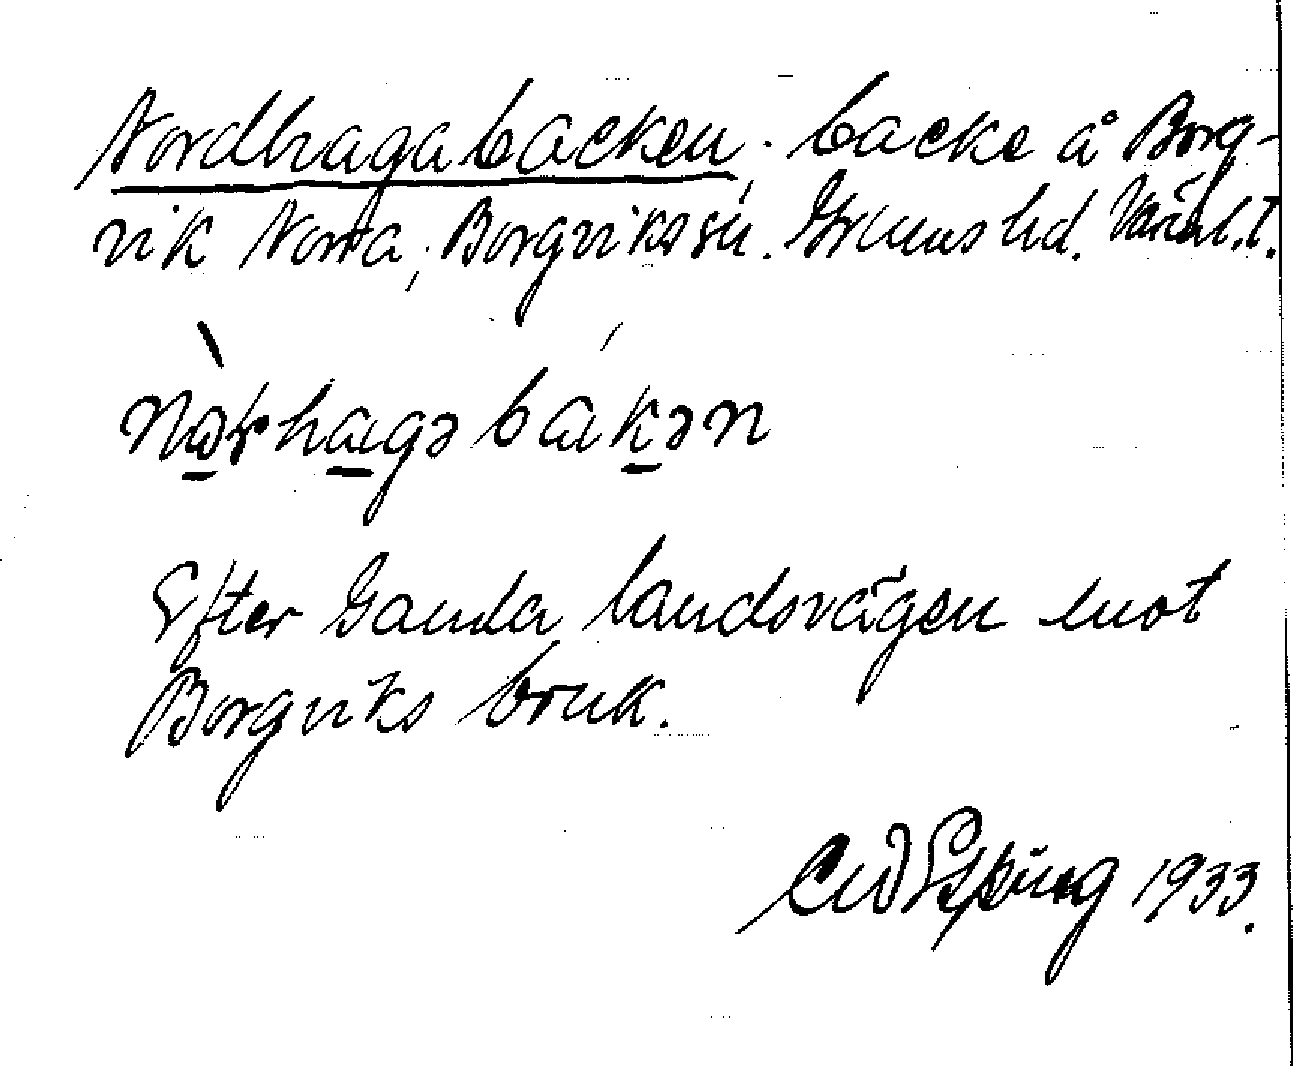 Nordhagabacken; backe å Borg-
vik Norra, Borgviks sn. Grums hd. Värml. l.
nòrhagəbákən
Efter Gamla landsvägen mot
Borgviks bruk.
Espüng 1933.